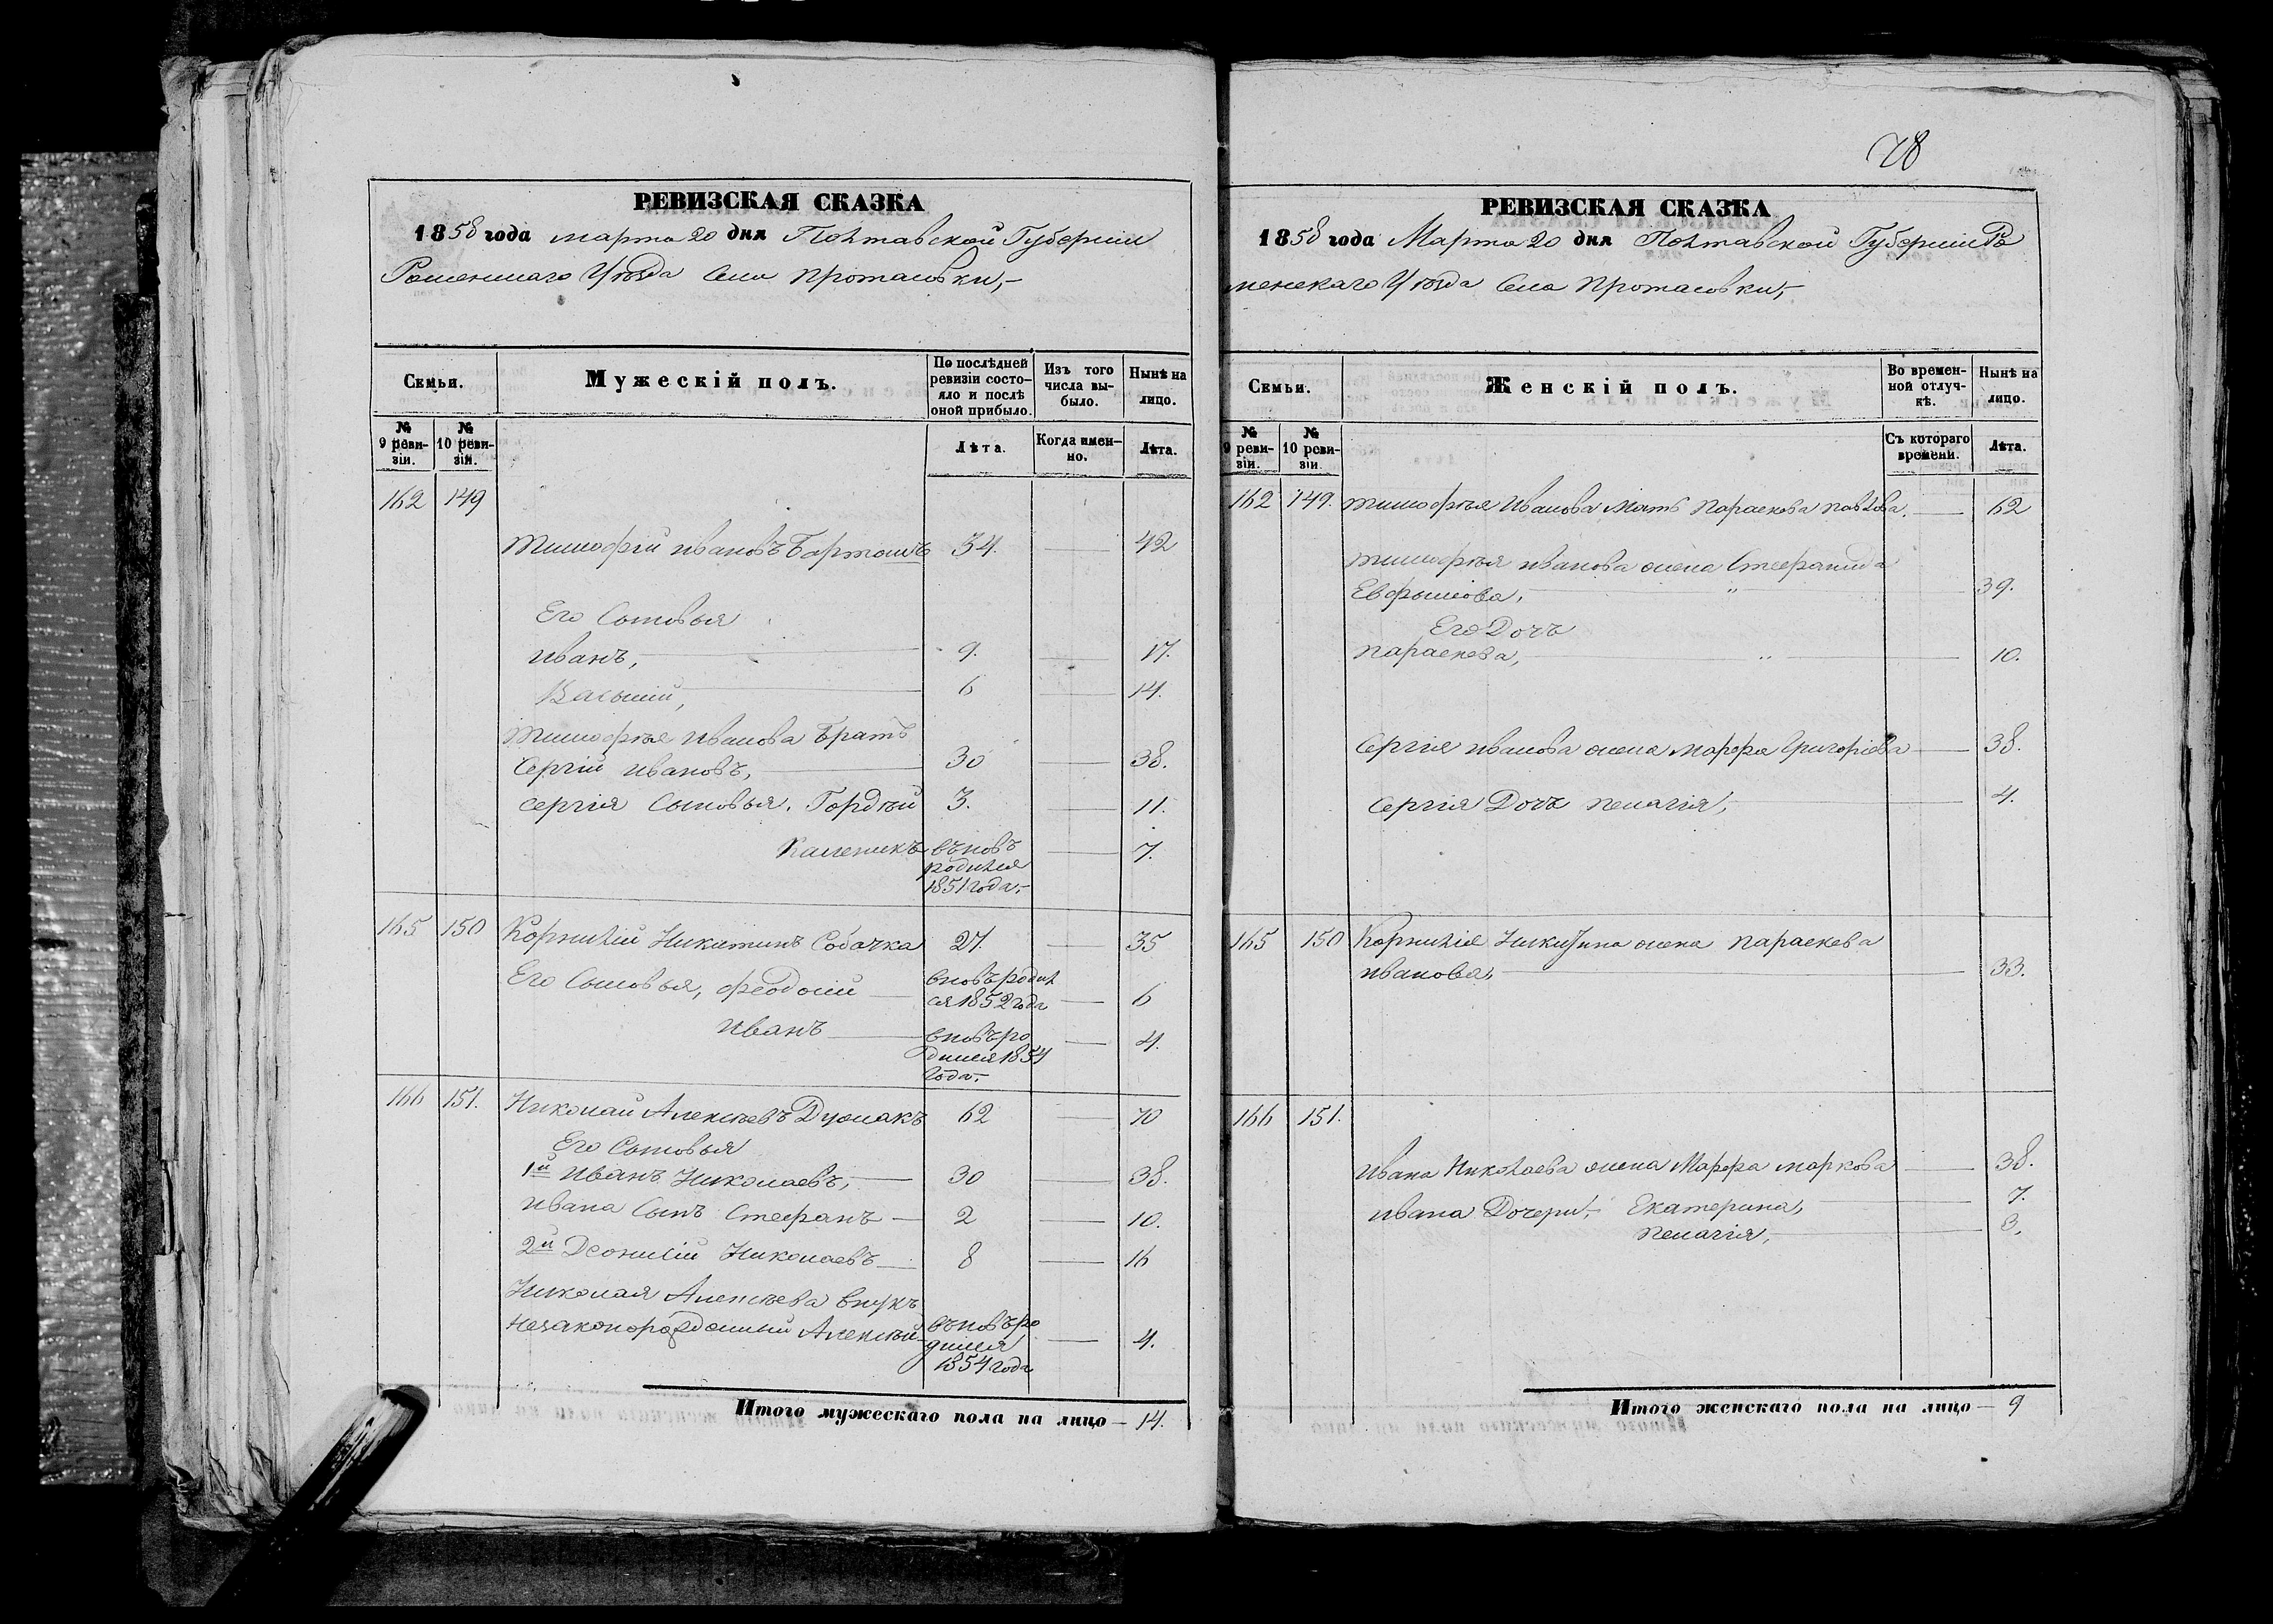 РЕВИЗСКАЯ СКАЗКА
1858 года марта 20 дня Полтавской Губернии
Роменскаго Уѣзда Села Протасовки,-
Семьи.
Мужескій полъ.
По послѣдней ревизіи состо-
яло и послѣ
оной прибыло.
Изъ того
числа вы-
было.
Нынѣ на
лицо.
№
9 реви-
зіи.
№
10 реви-
зіи.
Лѣта.
Когда имен-
но.
Лѣта.
162 149
Тимофѣй Ивановъ Бартошъ 34. 42
Его Сыновья
Иванъ, 9. 17.
Василий, 6 14.
Тимофѣя Иванова Братъ
Сергій Ивановъ, 30 38.
Сергія Сыновья. Гордѣй 3. 11.
Каленикъ въновь 7.
родился
1851 года.-
165 150 Корнилій Никитинъ Собачка 27. 35
Его Сыновья, Феодосий вновъ родил
ся 1852 года 6
Иванъ вновъ ро 4.
дился 1854
года.-
166 151. Николай Алексѣевъ Дузмакъ 62 70
Его Сыновья
1й Иванъ Николаевъ, 30 38.
Ивана Сынъ Стефанъ 2 10.
2й Леонтий Николаевъ 8 16
Николая Алексѣева внукъ
Незаконорожденный Алексѣй въновъ ро 4.
дился
1854 года
Итого мужескаго пола на лицо — 14.
78
РЕВИЗСКАЯ СКАЗКА
1858 года Марта 20 дня Полтавской Губерніи Ро
менскаго Уѣзда Села Протасовки,-
Семьи.
Женскій полъ.
Во времен-
ной отлуч-
кѣ.
Нынѣ на
лицо.
№
9 реви-
зіи.
№
10 реви-
зіи.
Съ котораго
времени.
Лѣта.
162 149. Тимофѣя Иванова Мать Параскева Павлова. 62
Тимофѣя Иванова жена Стефанида
Евфимова, " 39.
Его Дочь
Параскева, " 10.
Сергія Иванова жена Марфа Григоріева 38.
Сергія Дочь Пелагія, 4.
165 150 Корнилія Никитина жена Параскева
Иванова, 33.
166 151.
Ивана Николаева жена Марфа Маркова 38.
Ивана Дочери, Екатерина, 7.
Пелагія, 3.
Итого женскаго пола на лицо — 9